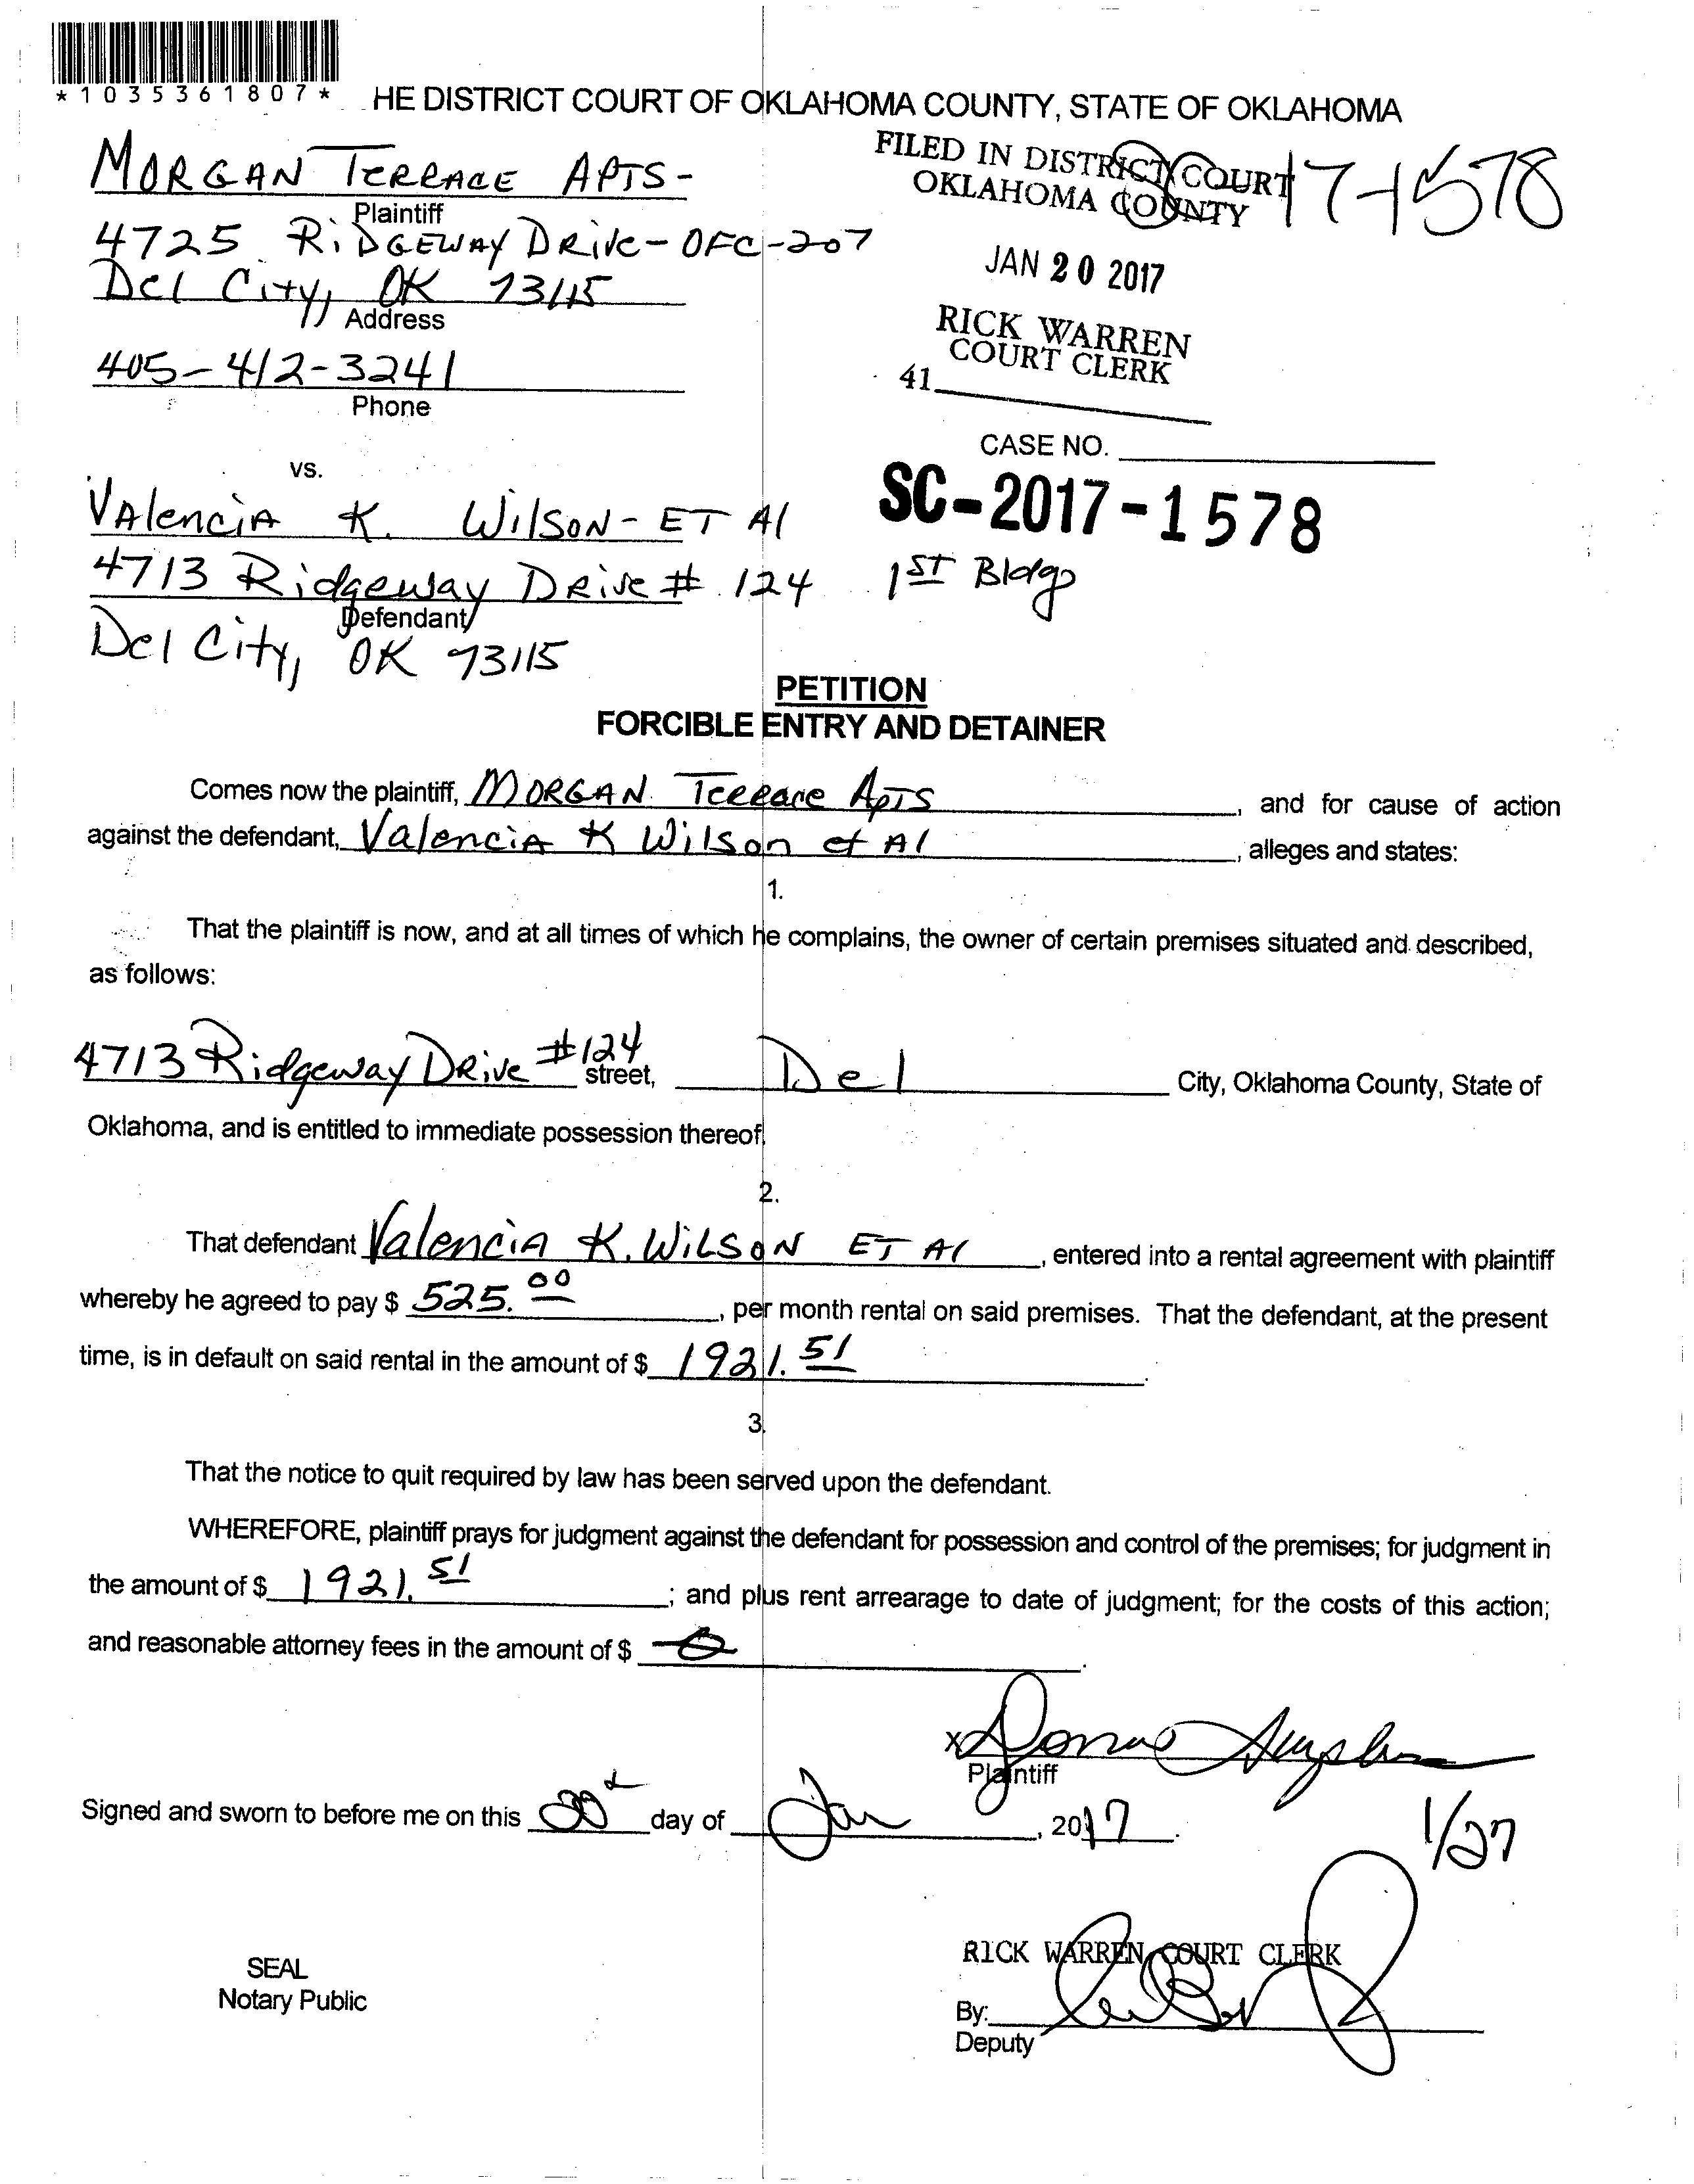 *1035361807*
HE DISTRICT COURT OF OKLAHOMA COUNTY, STATE OF OKLAHOMA
MORGAN TERRACE APTS-
Plaintiff
4725 RIDGEWAY DRIVE-OFC-207
Del City, OK 73115
Address
405-412-3241
Phone
FILED IN DISTRICT COURT
OKLAHOMA COUNTY
SC 17-1578
JAN 20 2017
RICK WARREN
COURT CLERK
41
CASE NO.
SC-2017-1578
1ST Bldg
vs.
Valencia K. Wilson-ET Al
4713 Ridgeway Drive # 124
Defendant
Del City, OK 73115
PETITION
FORCIBLE ENTRY AND DETAINER
Comes now the plaintiff, MORGAN Terrace Apts, and for cause of action
against the defendant, Valencia K Wilson et Al, alleges and states:
1.
That the plaintiff is now, and at all times of which he complains, the owner of certain premises situated and described,
as follows:
4713 Ridgeway Drive #124 street, Del City, Oklahoma County, State of
Oklahoma, and is entitled to immediate possession thereof.
2.
That defendant Valencia K. Wilson ET Al, entered into a rental agreement with plaintiff
whereby he agreed to pay $ 525.00, per month rental on said premises. That the defendant, at the present
time, is in default on said rental in the amount of $ 1921.51.
3.
That the notice to quit required by law has been served upon the defendant.
WHEREFORE, plaintiff prays for judgment against the defendant for possession and control of the premises; for judgment in
the amount of $ 1921.51; and plus rent arrearage to date of judgment; for the costs of this action;
and reasonable attorney fees in the amount of $ 0.
X
Plaintiff
Signed and sworn to before me on this 20 day of Jan, 2017.
1/27
RICK WARREN COURT CLERK
SEAL
Notary Public
By:
Deputy